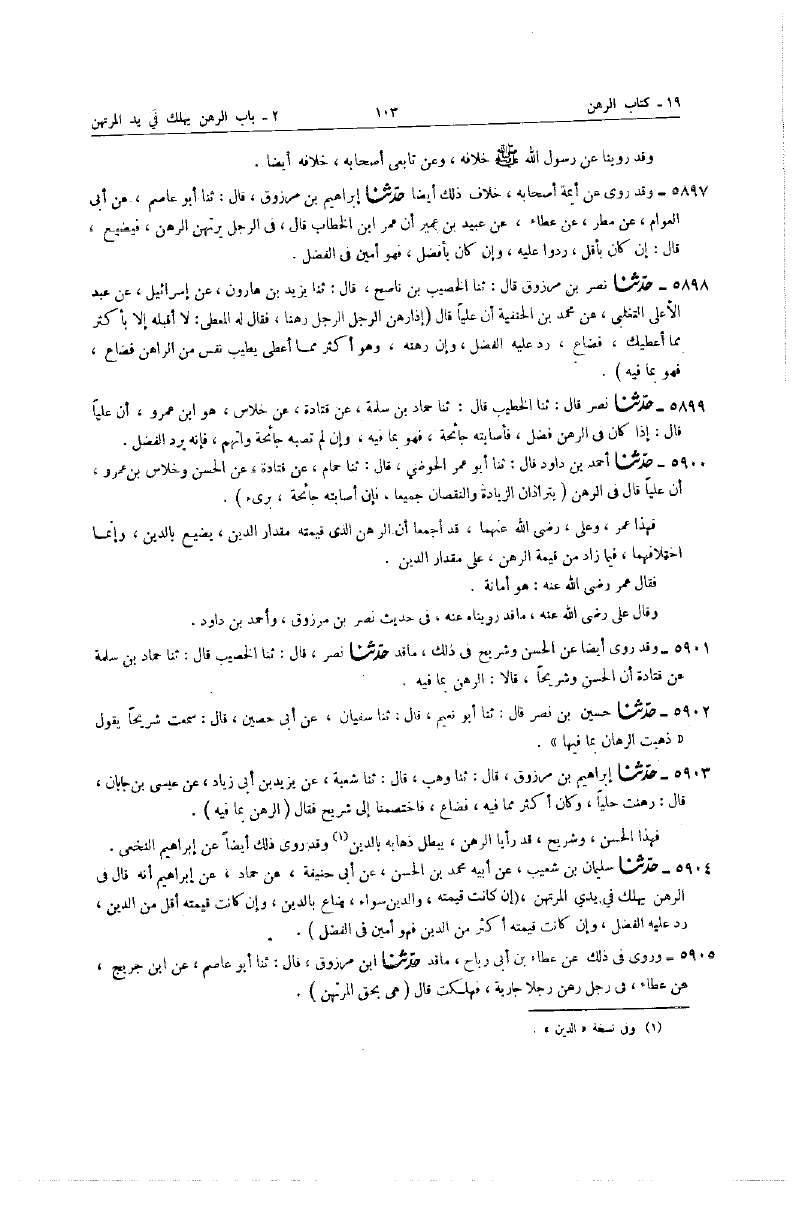 ١٩ ـ كتاب الرهن ١٠٣ ٢ ـ باب الرهن يهلك في يد المرتهن
وقد روينا عن رسول الله ﷺ خلافه ، وعن تابعى أصحابه ، خلافه أيضا .
٥٨٩٧ ـ وقد روى عن أئمة أصحابه ، خلاف ذلك أيضا حدّثنا إبراهيم بن مرزوق ، قال : ثنا أبو عاصم ، عن أبى
العوام ، عن مطر ، عن عطاء ، عن عبيد بن عمير أن عمر ابن الخطاب قال ، فى الرجل يرتهن الرهن ، فيضيع ،
قال : إن كان بأقل ، ردوا عليه ، وإن كان بأفضل ، فهو أمين فى الفضل .
٥٨٩٨ ـ حدّثنا نصر بن مرزوق قال : ثنا الخصيب بن ناصح ، قال : ثنا يزيد بن هارون ، عن إسرائيل ، عن عبد
الأعلى التغلبي ، عن محمد بن الحنفية أن علياً قال (إذا رهن الرجل الرجل رهنا ، فقال له المعطى: لا أقبله إلا بأكثر
مما أعطيك ، فضاع ، رد عليه الفضل ، وإن رهنه ، وهو أكثر ممـا أعطى بطيب نفس من الراهن فضاع ،
فهو بما فيه ) .
٥٨٩٩ ـ حدّثنا نصر قال : ثنا الخطيب قال : ثنا حماد بن سلمة ، عن قتادة ، عن خلاس ، هو ابن عمرو ، أن علياً
قال : إذا كان فى الرهن فضل ، فأصابته جائحة ، فهو بما فيه ، وإن لم تصبه جائحة واتهم ، فإنه يرد الفضل .
٥٩٠٠ ـ حدّثنا أحمد بن داود قال : ثنا أبو عمر الحوضي ، قال : ثنا همام ، عن قتادة ، عن الحسن وخلاس بن عمرو ،
أن علياً قال فى الرهن ( يترادّان الزيادة والنقصان جميعا ، فإن أصابته جائحة ، برىء ) .
فهذا عمر ، وعلى ، رضى الله عنهما ، قد أجمعا أن الرهن الذى قيمته مقدار الدين ، يضيع بالدين ، وإنمـا
اختلافهما ، فيما زاد من قيمة الرهن ، على مقدار الدين .
فقال عمر رضى الله عنه : هو أمانة .
وقال على رضى الله عنه ، ماقد رويناه عنه ، فى حديث نصر بن مرزوق ، وأحمد بن داود .
٥٩٠١ ـ وقد روى أيضا عن الحسن وشريح فى ذلك ، ماقد حدّثنا نصر ، قال : ثنا الخصيب قال : ثنا حماد بن سلمة
عن قتادة أن الحسن وشريحاً ، قالا : الرهن بما فيه .
٥٩٠٢ ـ حدّثنا حسين بن نصر قال : ثنا أبو نعيم ، قال : ثنا سفيان ، عن أبى حصين ، قال : سمعت شريحاً يقول
« ذهبت الرهان بما فيها » .
٥٩٠٣ ـ حدّثنا إبراهيم بن مرزوق ، قال : ثنا وهب ، قال : ثنا شعبة ، عن يزيد بن أبى زياد ، عن عيسى بن جابان ،
قال : رهنت حلياً ، وكان أكثر مما فيه ، فضاع ، فاختصمنا إلى شريح فقال ( الرهن بما فيه ) .
فهذا الحسن ، وشريح ، قد رأيا الرهن ، يبطل ذهابه بالدين(١) وقد روى ذلك أيضاً عن إبراهيم النخعى .
٥٩٠٤ ـ حدّثنا سليمان بن شعيب ، عن أبيه محمد بن الحسن ، عن أبى حنيفة ، عن حماد ، عن إبراهيم أنه قال فى
الرهن يهلك في يدي المرتهن ،(إن كانت قيمته ، والدين سواء ، ضاع بالدين ، وإن كانت قيمته أقل من الدين ،
رد عليه الفضل ، وإن كانت قيمته أكثر من الدين فهو أمين فى الفضل ) .
٥٩٠٥ ـ وروى فى ذلك عن عطاء بن أبى رباح ، ماقد حدّثنا ابن مرزوق ، قال : ثنا أبو عاصم ، عن ابن جريج ،
عن عطاء ، فى رجل رهن رجلا جارية ، فهلكت قال ( هى بحق المرتهن ) .
(١) وفى نسخة « الدين » .